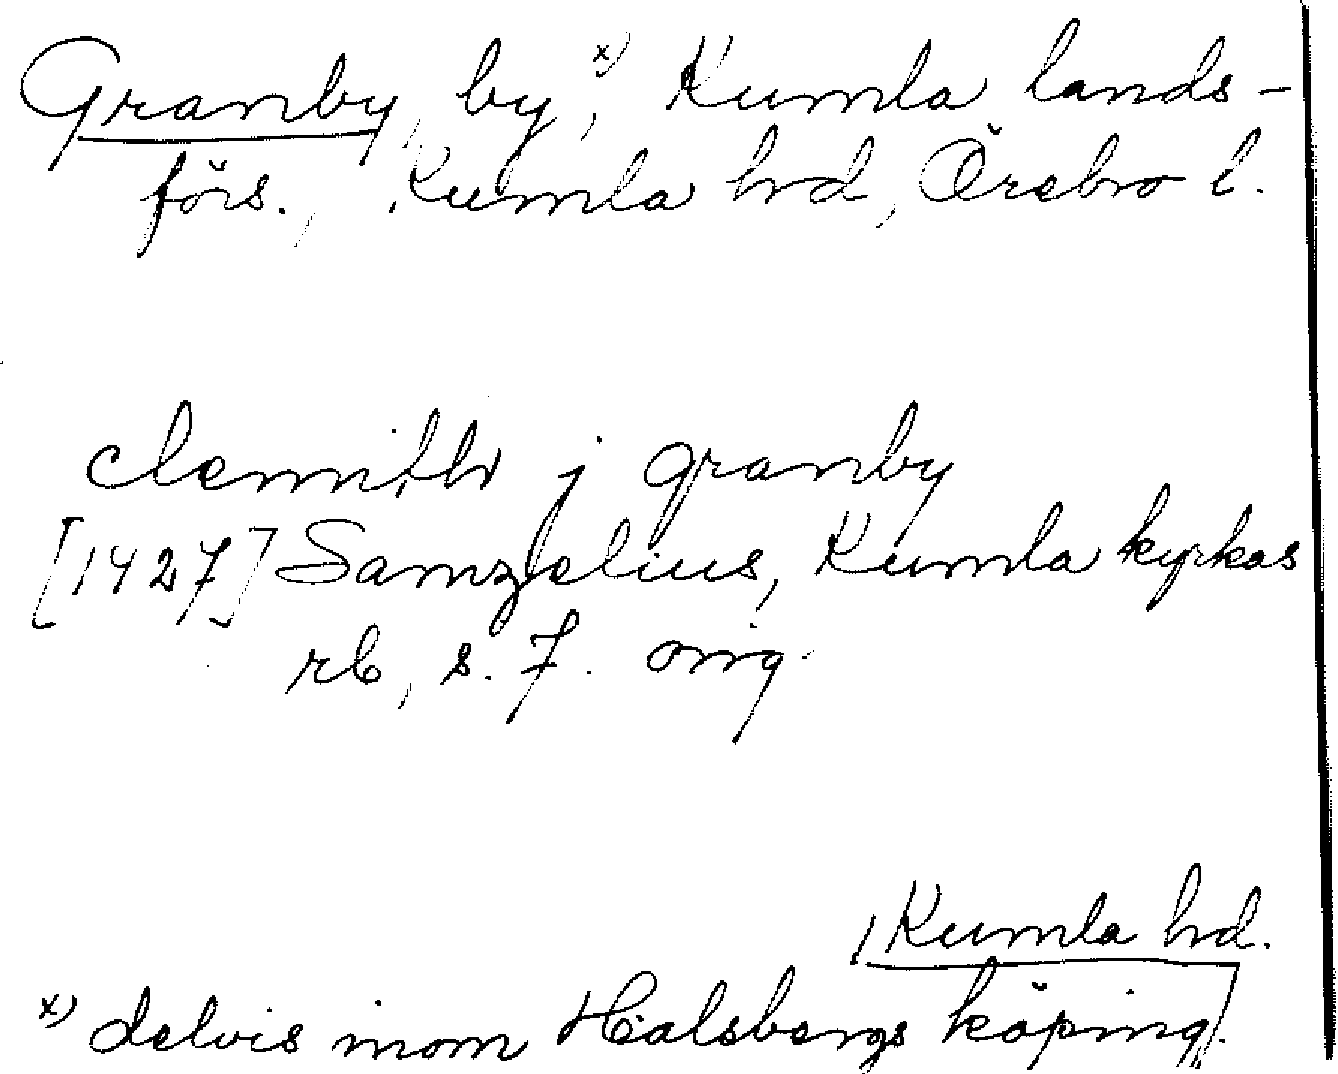 Granby, by x), Kumla lands-
förs., Kumla hd, Örebro l.
j granby
[1427] Samzelius, Kumla kyrkas
rb, s. 7. orig.
Kumla hd.
x) delvis inom Hallsbergs köping.